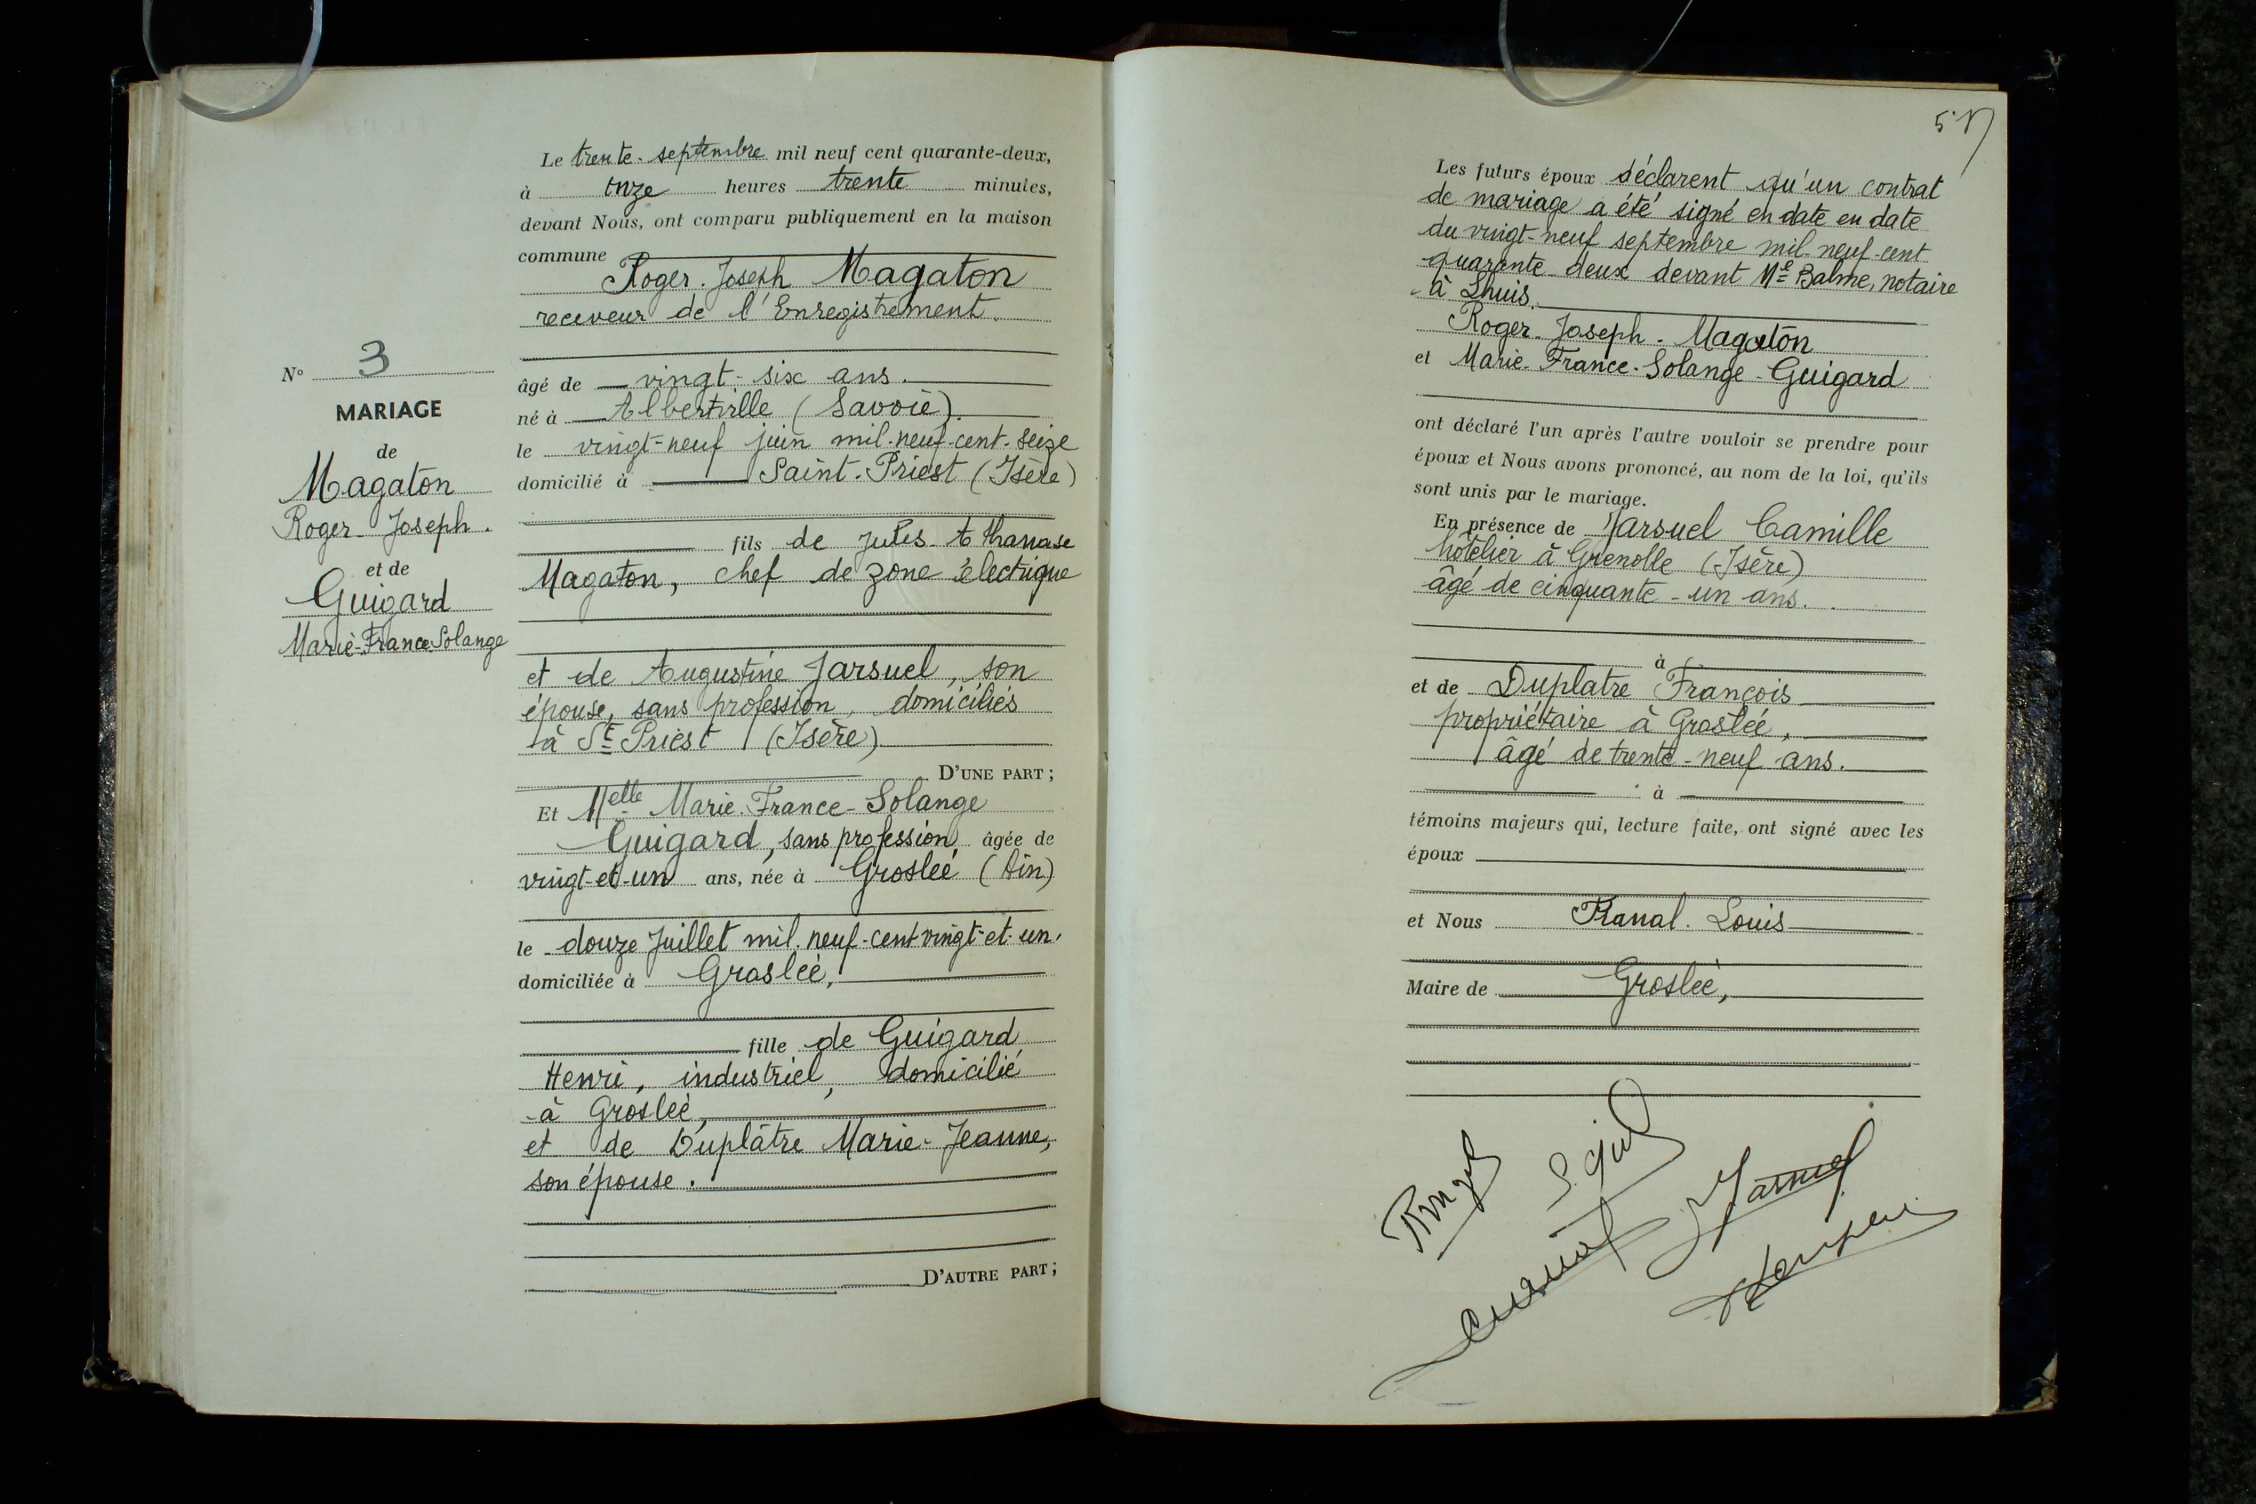 Le trente septembre mil neuf cent quarante-deux,
à onze heures trente minutes,
devant Nous, ont comparu publiquement en la maison
commune
Roger Joseph Magaton
receveur de l'Enregistrement.
N° 3
MARIAGE
de
Magaton
Roger Joseph.
et de
Guigard
Marie-France Solange
âgé de vingt-six ans.
né à Albertville (Savoie).
le vingt-neuf juin mil-neuf-cent-seize
domicilié à Saint-Priest (Isère)
fils de Jules Athanase
Magaton, chef de zone électrique
et de Augustine Jarsuel, son
épouse, sans profession, domiciliés
à St Priest (Isère)
D'UNE PART;
Et Melle Marie-France-Solange
Guigard, sans profession, âgée de
vingt-et-un ans, née à Groslée (Ain)
le douze Juillet mil neuf-cent vingt-et-un,
domiciliée à Groslée,
fille de Guigard
Henri, industriel, domicilié
à Groslée,
et de Duplâtre Marie-Jeanne,
son épouse.
D'AUTRE PART;
Les futurs époux déclarent qu'un contrat
de mariage a été signé en date en date
du vingt-neuf septembre mil-neuf-cent
quarante-deux devant Me Balme, notaire
à Lhuis.
Roger-Joseph-Magaton
et Marie-France-Solange-Guigard
ont déclaré l'un après l'autre vouloir se prendre pour
époux et Nous avons prononcé, au nom de la loi, qu'ils
sont unis par le mariage.
En présence de Jarsuel Camille
hôtelier à Grenoble (Isère)
âgé de cinquante-un ans.
à
et de Duplatre François
propriétaire à Groslée,
âgé de trente-neuf ans.
à
témoins majeurs qui, lecture faite, ont signé avec les
époux
et Nous Louis
Maire de Groslée,
Jarsuel